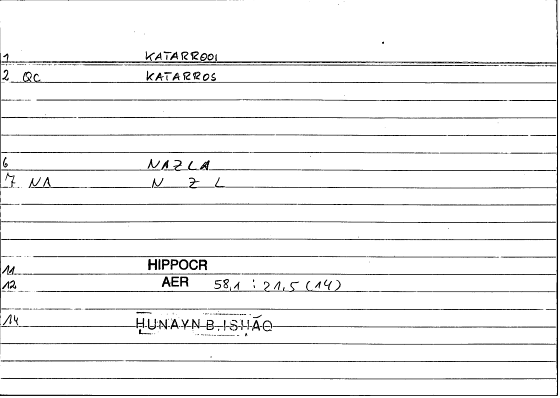 1 KATARROOI
2 QC KATARROS
6 NAZLA
7 NA N Z L
11 HIPPOCR
12 AER 58,1 : 21,5 (14)
14 HUNAYN B. ISḤĀQ